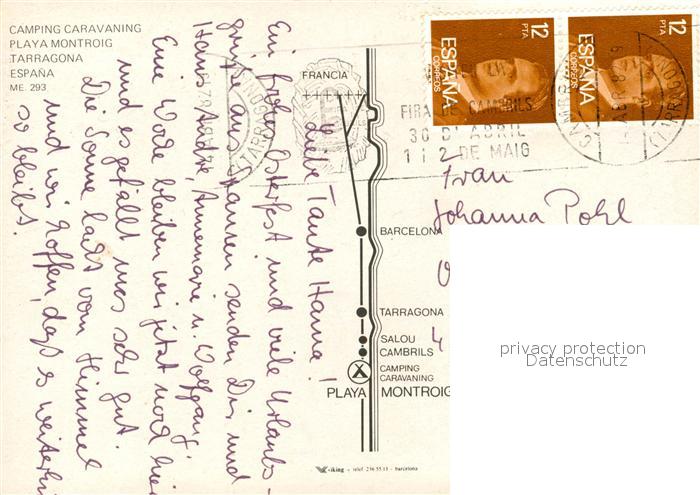 CAMPING CARAVANING
PLAYA MONTROIG
TARRAGONA
ESPAÑA
ME. 293
Liebe Tante Hanna!
Ein frohes Osterfest und viele Urlaubs-
grüße aus Spanien senden Dir und
Hans André, Annemarie u. Wolfgang.
Eine Woche bleiben wir jetzt noch hier
und es gefällt uns sehr gut.
Die Sonne lacht vom Himmel
und wir hoffen, daß es weiterhin
so bleibt.
12
PTA
ESPAÑA
CORREOS
12
PTA
ESPAÑA
CORREOS
FIRA DE CAMBRILS
30 D'ABRIL
1 i 2 DE MAIG
Frau
Johanna Pohl
4
FRANCIA
BARCELONA
TARRAGONA
SALOU
CAMBRILS
CAMPING
CARAVANING
PLAYA MONTROIG
viking - telef 236 55 13 - barcelona
privacy protection
Datenschutz